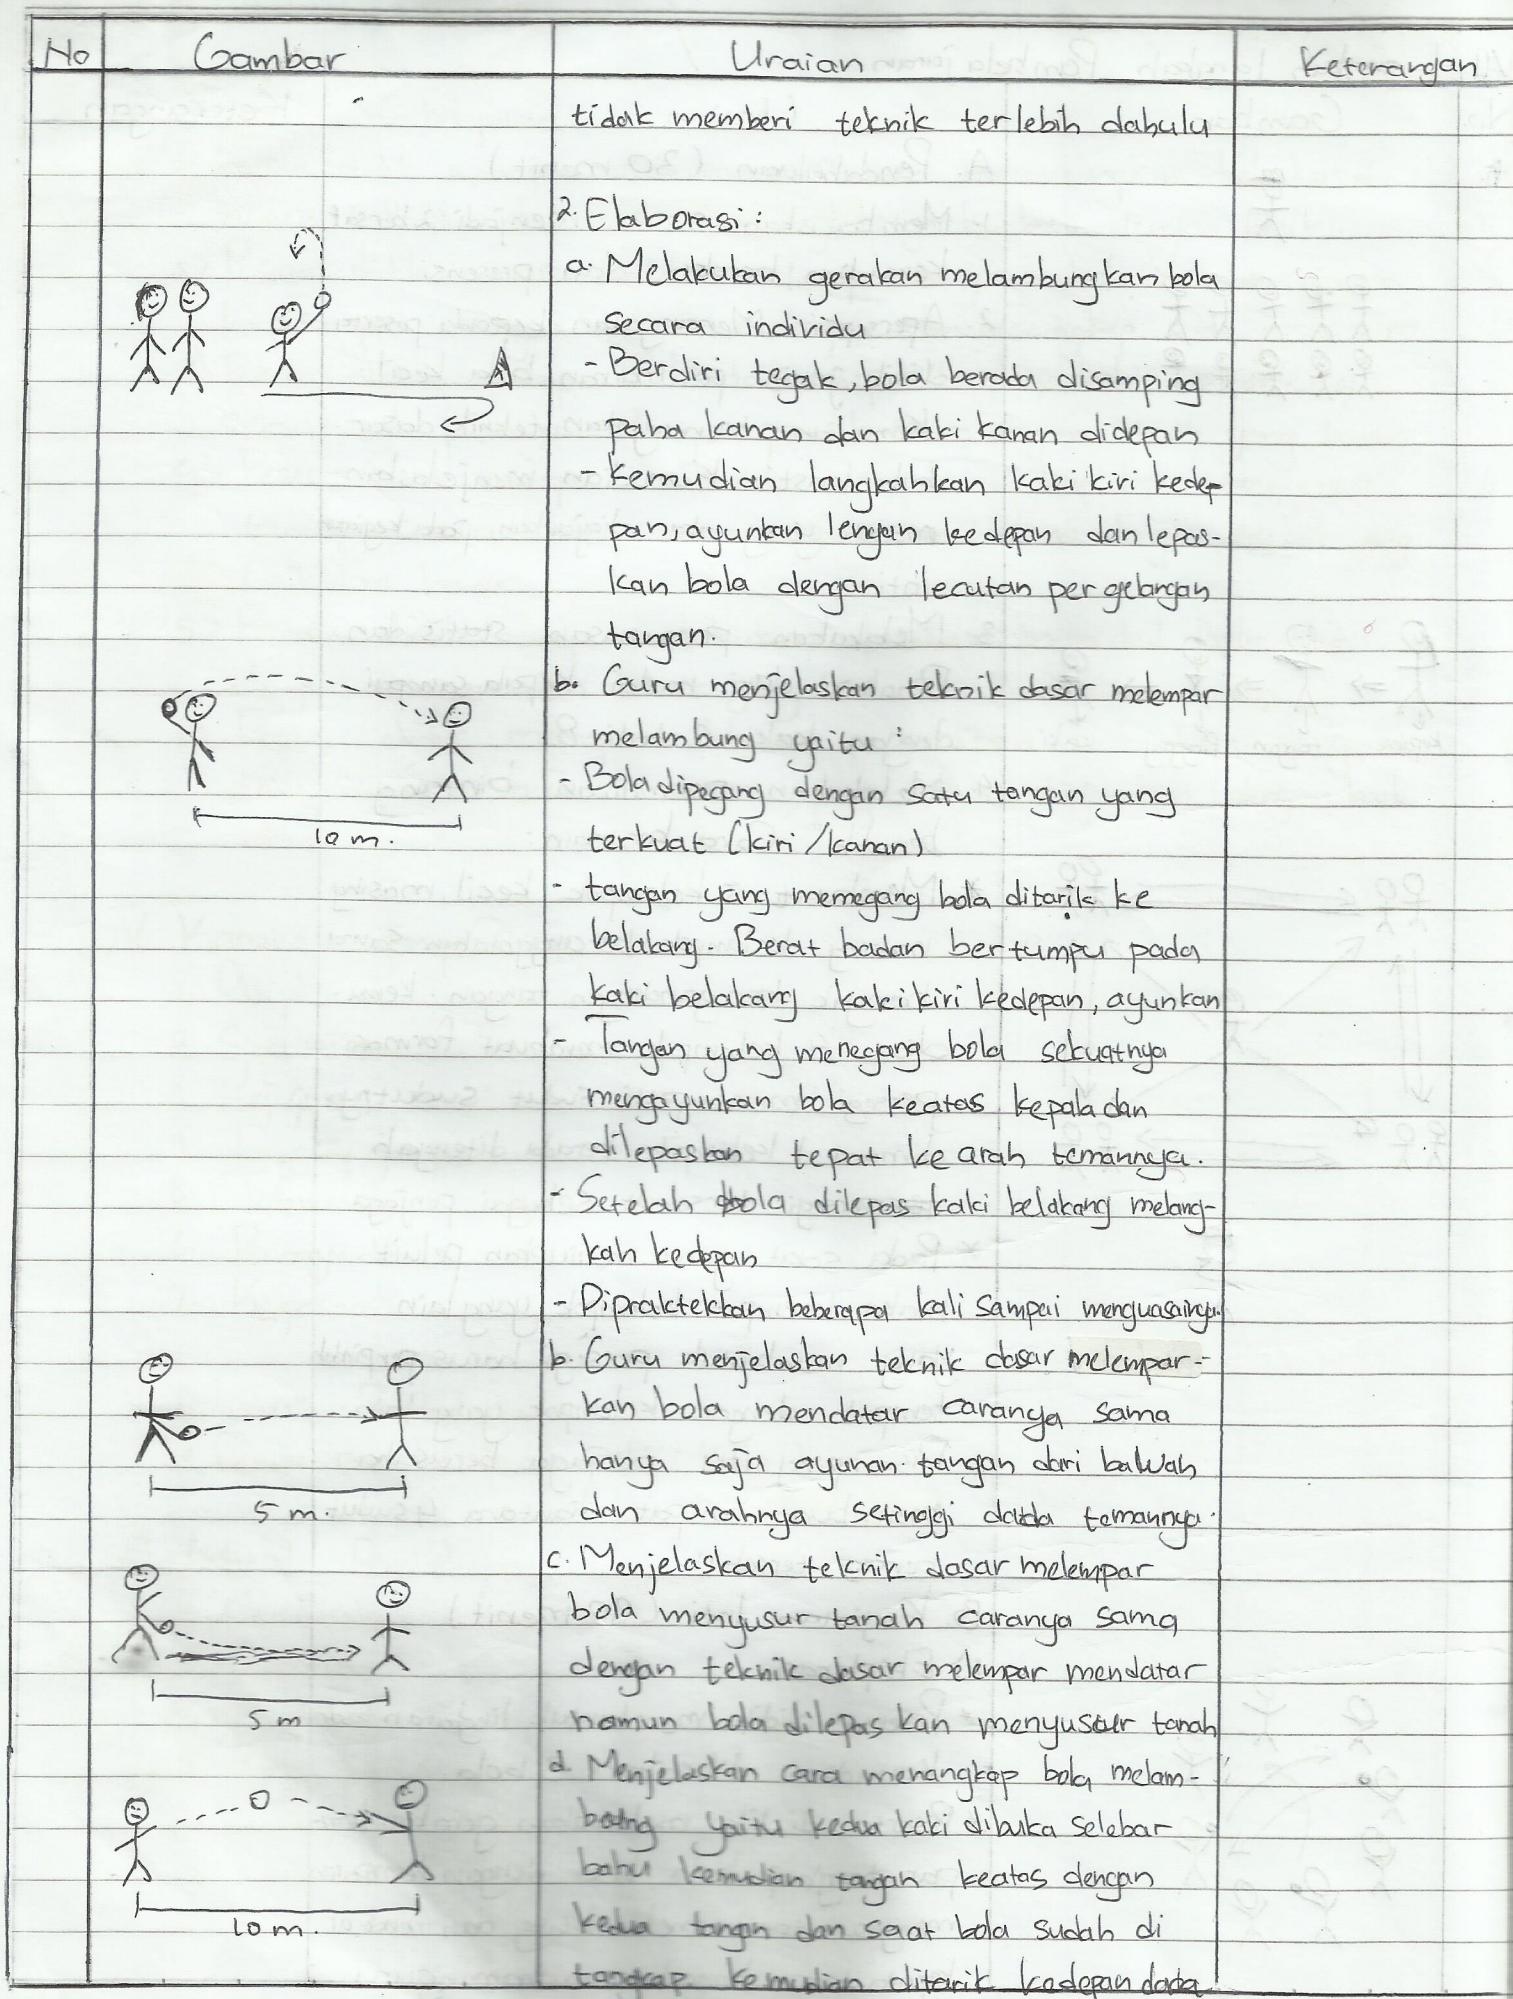 No Gambar Uraian Keterangan
tidak memberi teknik terlebih dahulu
2. Elaborasi :
a. Melakukan gerakan melambungkan bola
secara individu
- Berdiri tegak, bola berada disamping
paha kanan dan kaki kanan didepan
- Kemudian langkahkan kaki kiri kedep-
pan, ayunkan lengan kedepan dan lepas-
kan bola dengan lecutan pergelangan
tangan.
b. Guru menjelaskan teknik dasar melempar
melambung yaitu :
- Bola dipegang dengan satu tangan yang
terkuat (kiri/kanan)
10 m.
- tangan yang memegang bola ditarik ke
belakang. Berat badan bertumpu pada
kaki belakang kaki kiri kedepan, ayunkan
- Tangan yang menegang bola sekuatnya
mengayunkan bola keatas kepala dan
dilepaskan tepat ke arah temannya.
- Setelah bola dilepas kaki belakang melang-
kah kedepan
- Dipraktekkan beberapa kali sampai menguasainya.
b. Guru menjelaskan teknik dasar melempar-
kan bola mendatar caranya sama
hanya saja ayunan tangan dari bawah
dan arahnya setinggi dada temannya.
5 m.
c. Menjelaskan teknik dasar melempar
bola menyusur tanah caranya sama
dengan teknik dasar melempar mendatar
namun bola dilepaskan menyusur tanah
5 m
d. Menjelaskan cara menangkap bola melam-
bung yaitu kedua kaki dibuka selebar
bahu kemudian tangan keatas dengan
kedua tangan dan saat bola sudah di
10 m.
tangkap kemudian ditarik kedepan dada